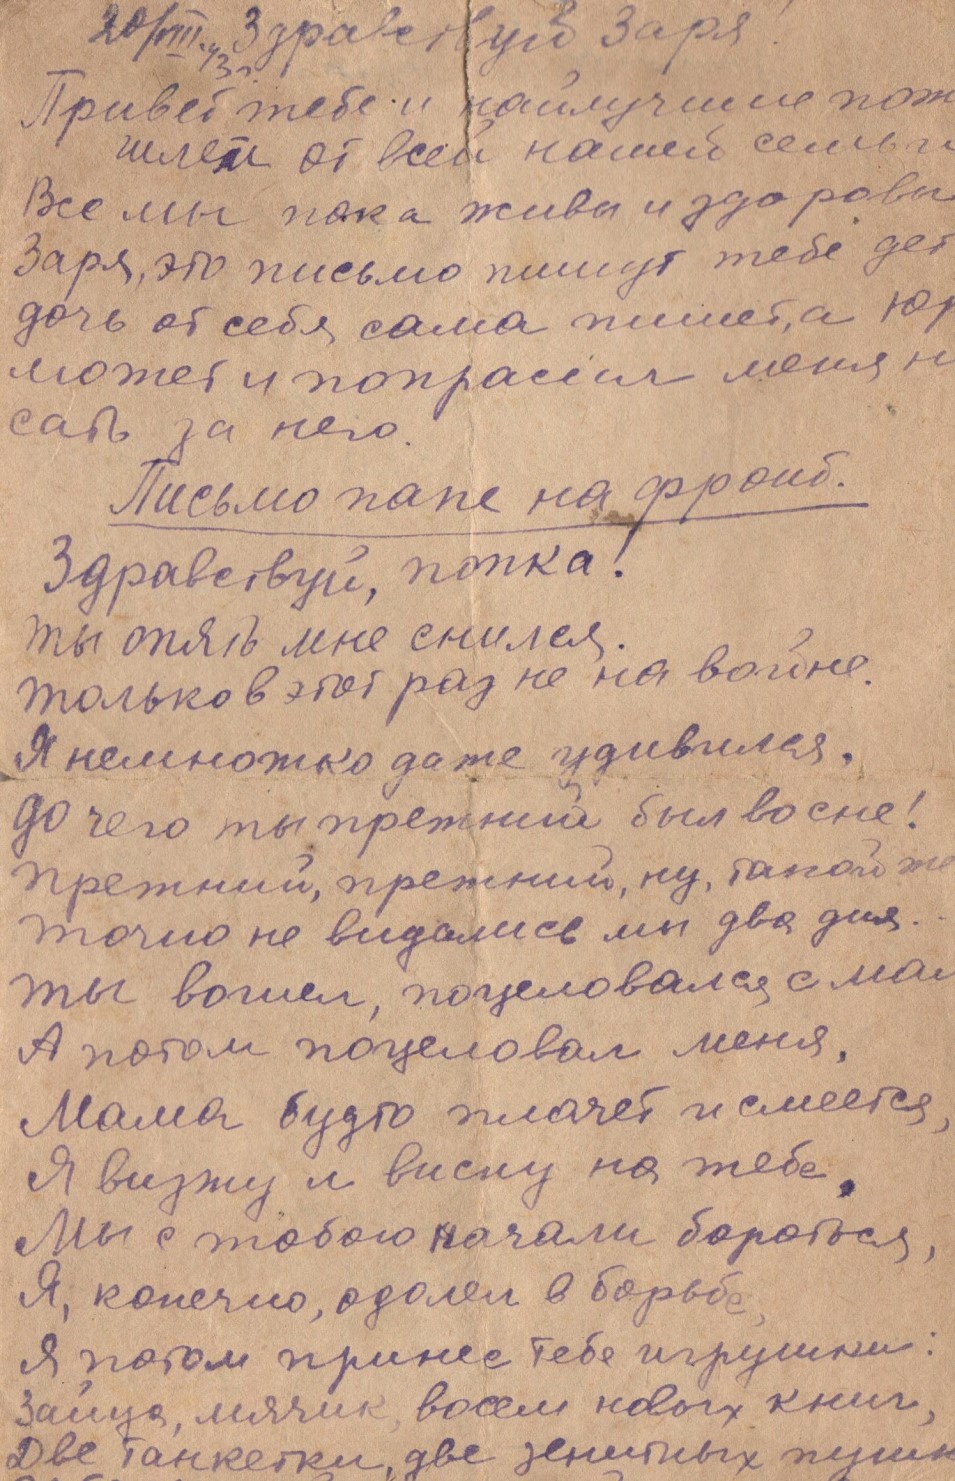 20/VIII.43г. Здравствуй Заря!
Привет тебе и наилучшие пож
шлем от всей нашей семьи
Все мы пока живы и здоровы
Заря, это письмо пишут тебе дет
дочь от себя сама пишет, а Юр
может и попрасил меня н
сать за него.
Письмо папе на фронт.
Здравствуй, папка!
Ты опять мне снился.
Только в этот раз не на войне.
Я немножко даже удивился.
До чего ты прежний был во сне!
Прежний, прежний, ну, такой же
Точно не видались мы два дня.
Ты вошел, поцеловался с мам
А потом поцеловал меня,
Мама будто плачет и смеется,
Я визжу и висну на тебе.
Мы с тобою начали бороться,
Я, конечно, одолел в борьбе,
Я потом принес тебе игрушки:
Зайца, мячик, восем новых книг,
Две танкетки, две зенитных пушк